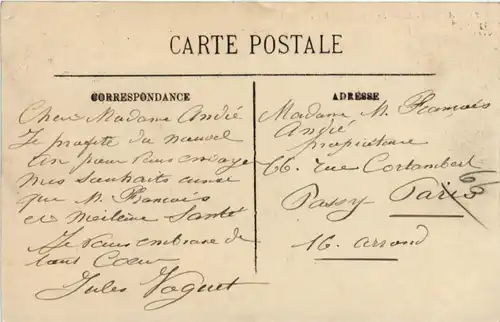 CARTE POSTALE
CORRESPONDANCE
Chere Madame André
Je profite du nouvel
an pour vous envoyer
mes souhaits ainsi
que M. François
et meilleure Santé
Je vous embrasse de
tout Coeur
Jules Voguet
ADRESSE
Madame M. François
André
propriétaire
66. rue Cortambert
Passy Paris
16. arrond